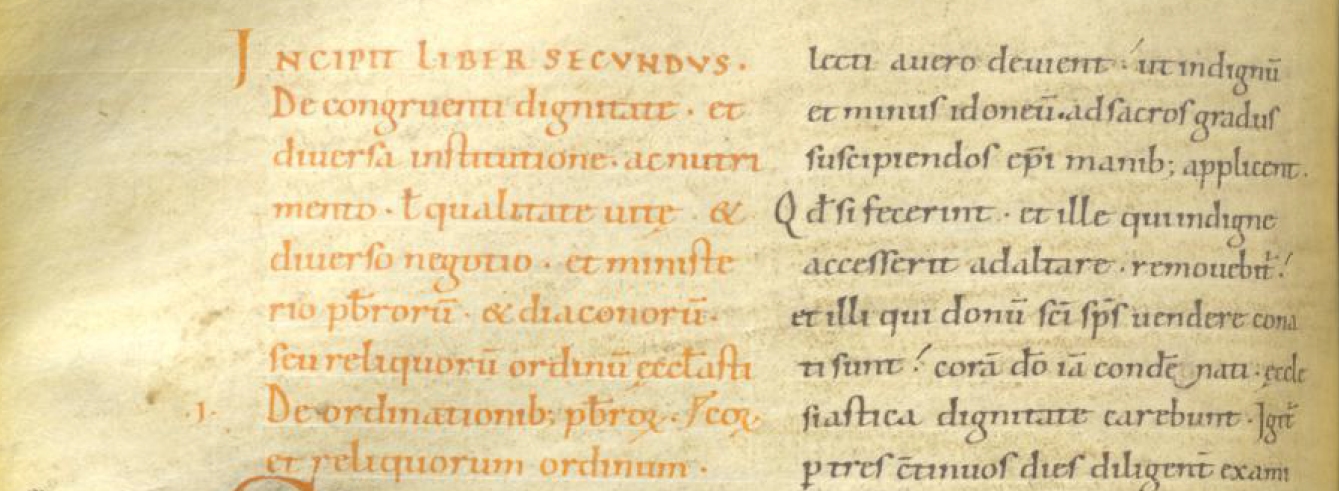 INCIPIT LIBER SECVNDVS.
De congruenti dignitate · et
diuersa institutione · ac nutri
mento · ł qualitate uitę · &
diuerso negotio · et ministe
rio pƀrorū · & diaconorū ·
seu reliquorū ordinū ęccłasti
.1. De ordinationib; pƀroꝝ ·
et reliquorum ordinum ·
lecti auero deuient : ut indignū
et minus idoneū · ad sacros gradus
suscipiendos ep̄i manib; applicent .
Qđ si fecerint · et ille qui indigne
accesserit ad altare · remouebit̄ :
et illi qui donū sc̄i sp̄s uendere cona
ti sunt : corā dō iā condē nati · ęccle
siastica dignitate carebunt · Igit̄
p tres c̄tinuos dies diligent̄ exami